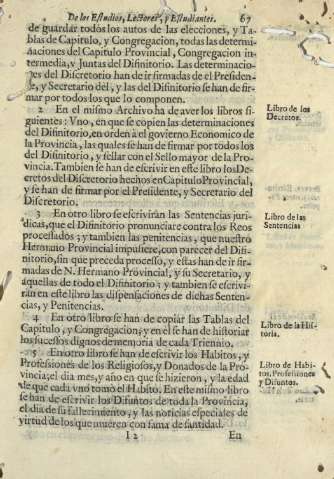 De los Estudios, Lectores, y Estudiantes. 67
de guardar todos los autos de las elecciones, y Ta-
blas de Capitulo, y Congregacion, todas las determi-
naciones del Capitulo Provincial, Congregacion in-
termedia, y Juntas del Difinitorio. Las determinacio-
nes del Discretorio han de ir firmadas de el Presiden-
te, y Secretario dèl, y las del Difinitorio se han de fir-
mar por todos los que lo componen.
2 En el mismo Archivo ha de aver los libros si-
guientes: Vno, en que se copien las determinaciones
del Difinitorio, en orden à el govierno Economico de
la Provincia, las quales se han de firmar por todos los
del Difinitorio, y sellar con el Sello mayor de la Pro-
vincia. Tambien se han de escrivir en este libro los De-
cretos del Discretorio hechos en Capitulo Provincial,
y se han de firmar por el Presidente, y Secretario del
Discretorio.
Libro de los
Decretos.
3 En otro libro se escrivirán las Sentencias juri-
dicas, que el Difinitorio pronunciare contra los Reos
processados; y tambien las penitencias, que nuestro
Hermano Provincial impusiere, con parecer del Difi-
nitorio, sin que preceda processo, y estas han de ir fir-
madas de N. Hermano Provincial, y su Secretario, y
aquellas de todo el Difinitorio; y tambien se escrivi-
ràn en este libro las dispensaciones de dichas Senten-
cias, y Penitencias.
Libro de las
Sentencias
4 En otro libro se han de copiar las Tablas del
Capitulo, y Congregacion; y en el se han de historiar
los sucessos dignos de memoria de cada Triennio.
Libro de la His-
toria.
5 En otro libro se han de escrivir los Habitos, y
Professiones de los Religiosos, y Donados de la Pro-
vincia, el dia mes, y año en que se hizieron, y la edad
de que cada vno tomò el Habito. En este mismo libro
se han de escrivir los Difuntos de toda la Provincia,
el dia de su fallecimiento, y las noticias especiales de
virtud de los que mueren con fama de santidad.
Libro de Habi-
tos, Professiones
y Difuntos.
I 2 En